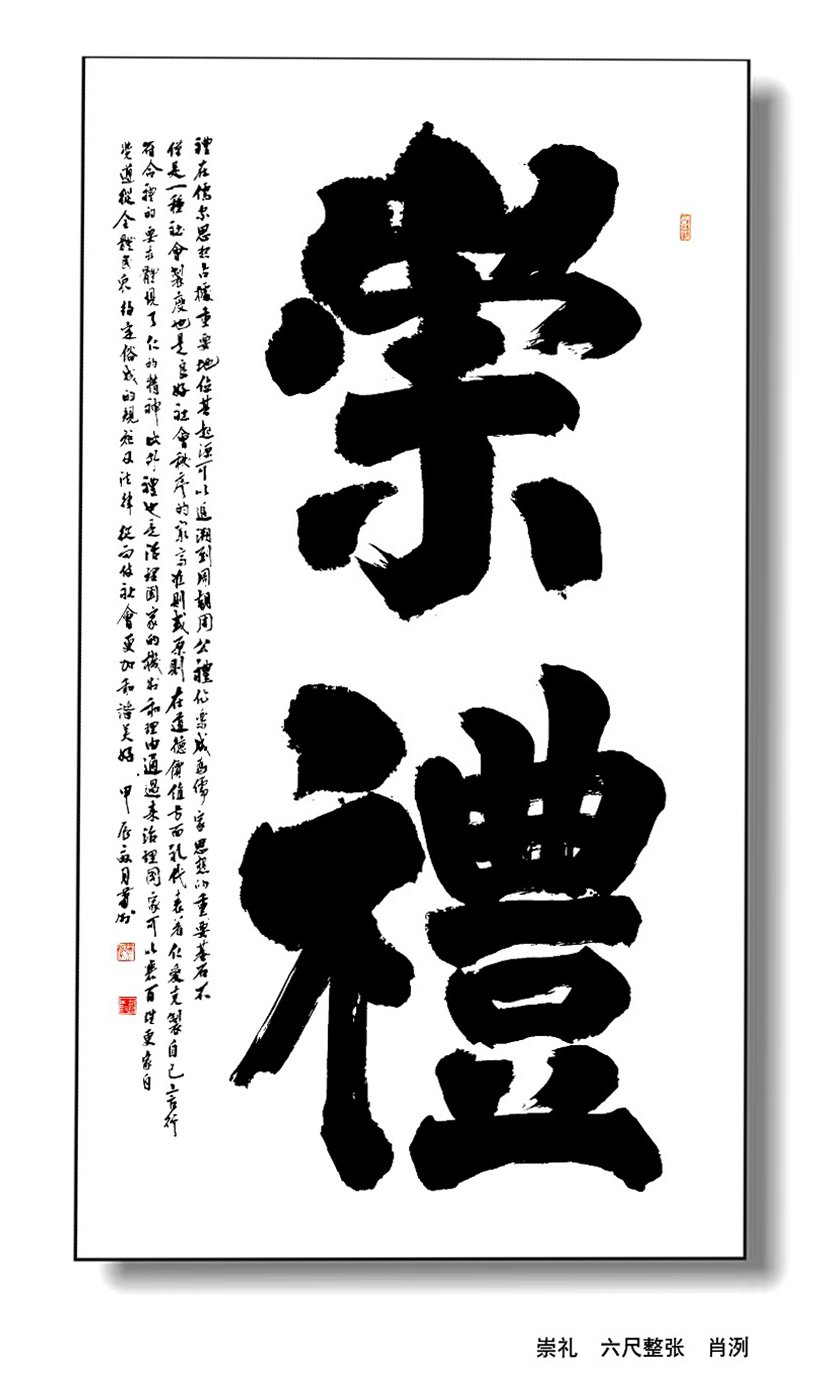 崇禮
禮在儒家思想占據重要地位其起源可以追溯到周朝周公禮作樂成為儒家思想的重要基石不
僅是一種社會製度也是良好社會秩序的最高准則或原則在道德價值方面礼代表着仁愛克製自己言行
符合禮的要求體現了仁的精神此外禮也是治理国家的機制和理由通過来治理国家可以衷百姓更家自
覺遵從全體民衆約定俗成的規范及法律從而使社會更加和諧美好 甲辰 月肖洌
崇礼 六尺整张 肖洌